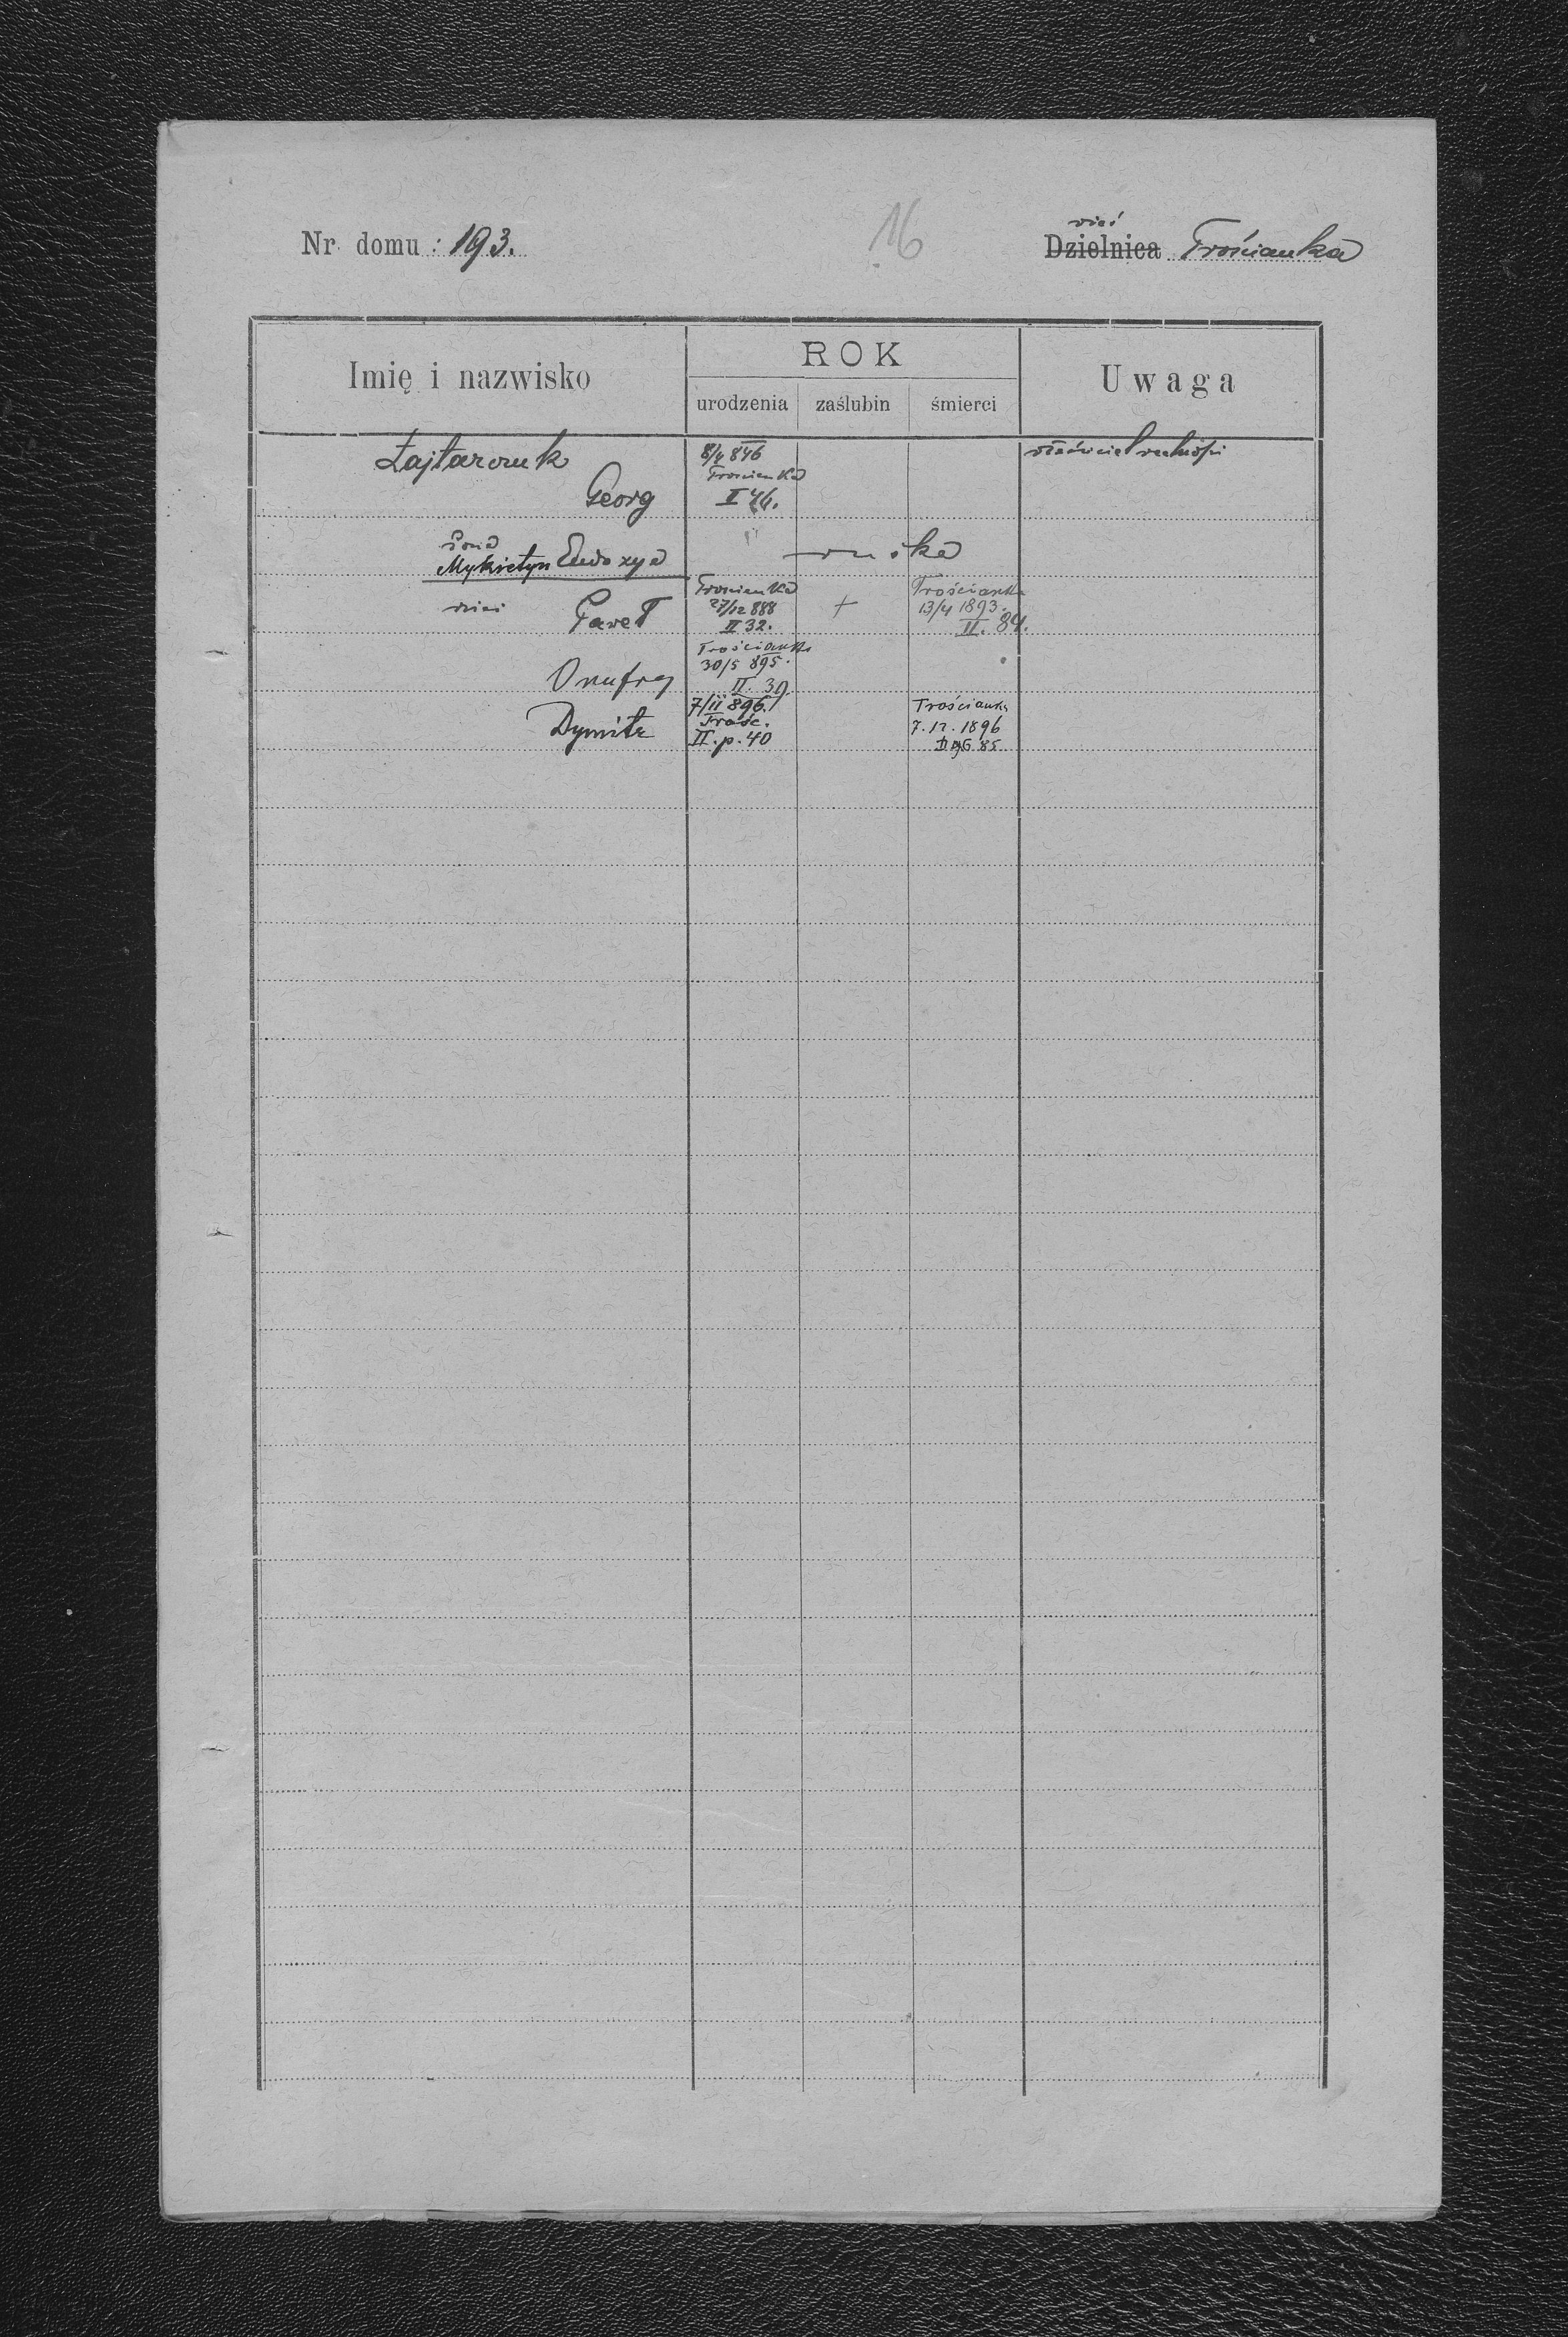 16
wieś
Nr domu : 193. Dzielnica Trościanka
Imię i nazwisko
ROK
urodzenia zaślubin śmierci
Uwaga
Łajtarczuk 8/4 846 właściciel realności
Trościanka
Georg II 46.
żona "
Mykietyn Eudoxya ruska
Trościanka Trościanka
dzieci Paweł 27/12 888 + 13/4 1893.
II 32. II. 84.
Trościanka
30/5 895.
Onufry II. 39
7/II 896. Trościanka
Dymitr Trośc. 7.12.1896
II. p. 40 pag 85